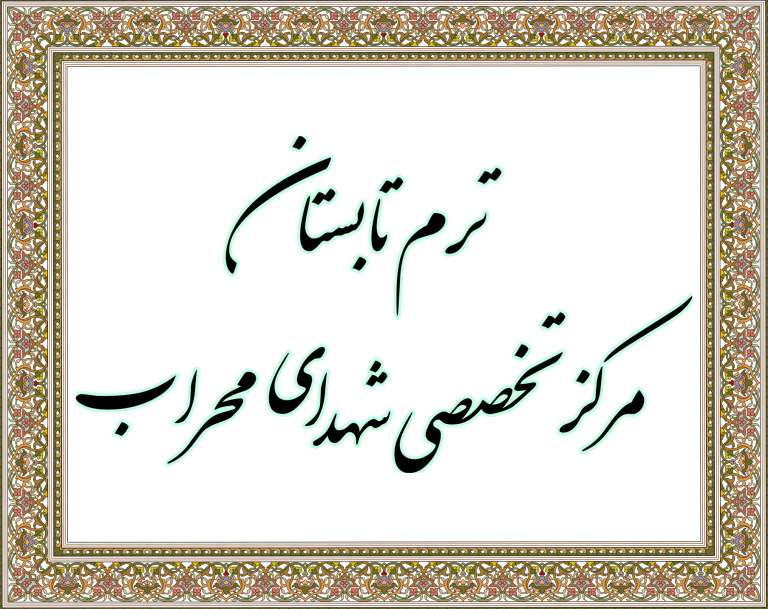 ترم تابستان
مرکز تخصصی شهدای محراب